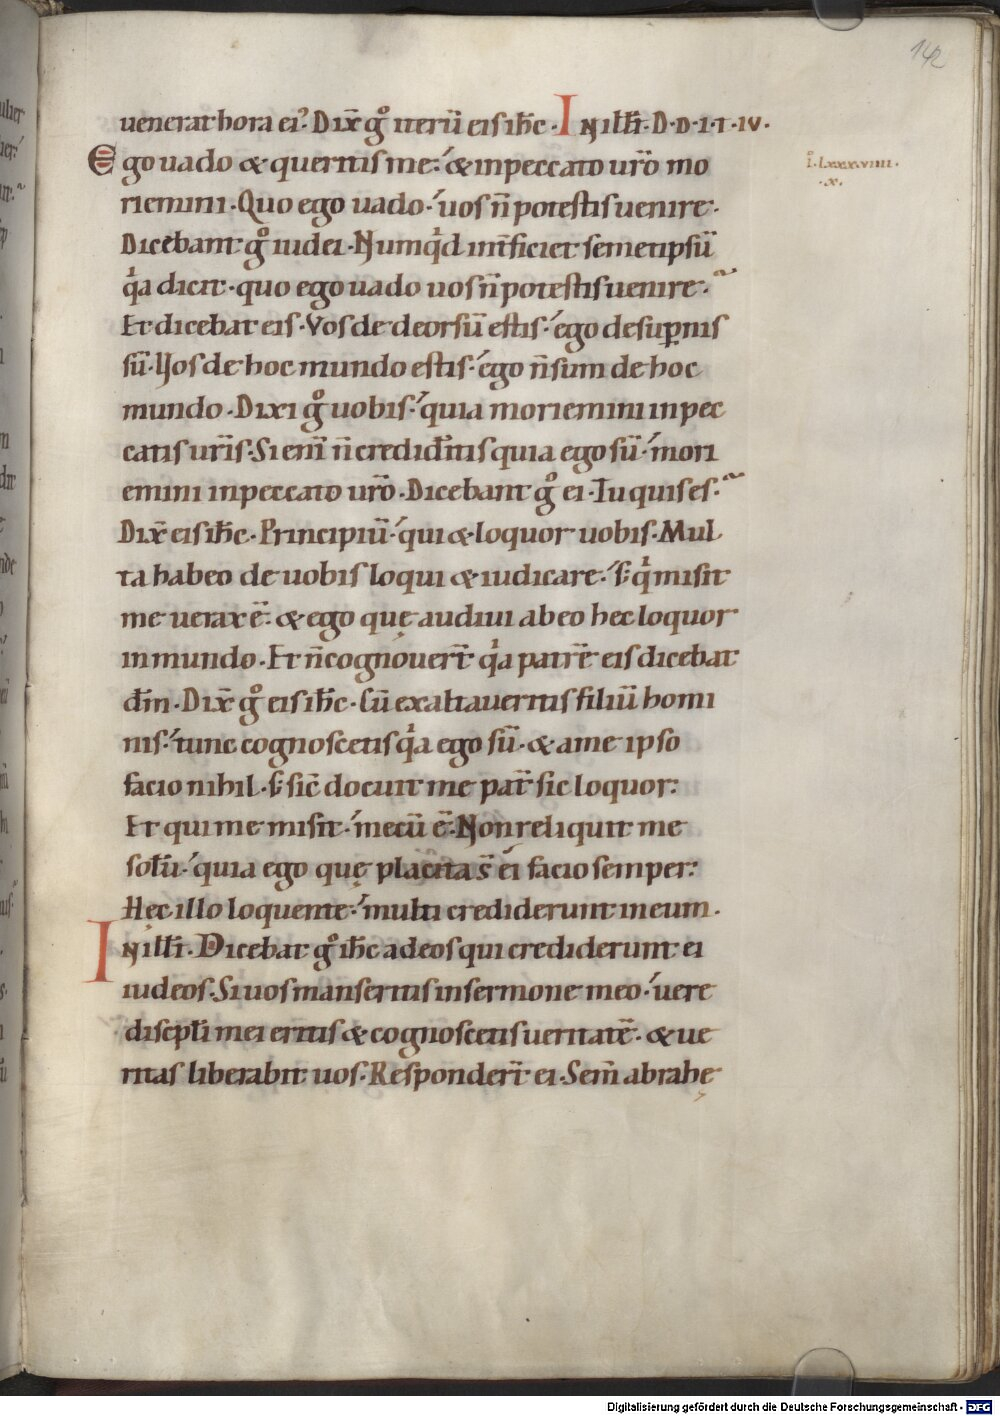 142
uenerat hora ei᷒. Dix̄ gͦ iterū eis ih̄c. IN ill̄i. D. D. I. T. IV.
Ego uado & queritis me. & inpeccato ur̄o mo
riemini. Quo ego uado. uos n̄ potestis uenire.
Dicebant gͦ iudei. Numqͥd int̄ficiet semetipsū
qͥa dicit. quo ego uado uos n̄ potestis uenire.
Et dicebat eis. Vos de deorsū estis. ego desuꝑnis
sū. Vos de hoc mundo estis. ego n̄ sum de hoc
mundo. Dixi gͦ uobis. quia moriemini inpec
catis ur̄is. Si enī n̄ credid̄itis quia ego sū. mori
emini inpeccato ur̄o. Dicebant gͦ ei. Tu quis es.
Dix̄ eis ih̄c. Principiū. qui & loquor uobis. Mul
ta habeo de uobis loqui & iudicare. s; qͥ misit
me uerax ē. & ego quę audiui ab eo hec loquor
in mundo. Et n̄ cognouer̄t qͥa patrē eis dicebat
dm̄. Dix̄ gͦ eis ih̄c. Cū exaltaueritis filiū homi
nis. tunc cognoscetis qͥa ego sū. & a me ipso
facio nihil. s; sic̄ docuit me pat̄ sic loquor.
Et qui me misit. mecū ē. Non reliquit me
solū. quia ego quę placita s̄ ei facio semper.
Hęc illo loquente. multi crediderunt in eum.
IN ill̄i. Dicebat gͦ ih̄c ad eos qui crediderunt ei
iudeos. Si uos manseritis in sermone meo. uere
discipl̄i mei eritis & cognoscetis ueritatē. & ue
ritas liberabit uos. Responder̄t ei. Sem̄ abrahę
I. Lxxxviiii.
.x.
Digitalisierung gefördert durch die Deutsche Forschungsgemeinschaft - DFG